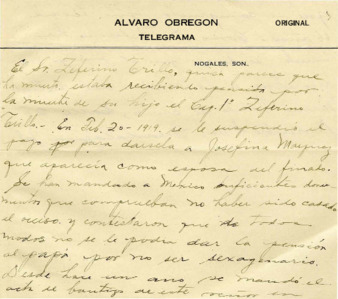 ALVARO OBREGON
ORIGINAL
TELEGRAMA
NOGALES, SON.
El Sr. Zeferino Trillo, quien parece que
la muerte, estaba recibiendo pensión por
la muerte de su hijo el Cap. 1º Zeferino
Trillo.- En Feb. 20-1919. se le suspendió el
pago por para darsela a Josefina Muñoz
que aparecía como esposa del finado.
Se han mandado a Mexico suficientes docu-
mentos que comprueban no haber sido casado
el occiso, y contestaron que de todos
modos no se le podra dar la pensión
al papá por no ser sexagenario.
Desde hace un ano se mandó el
acta de bautizo de este